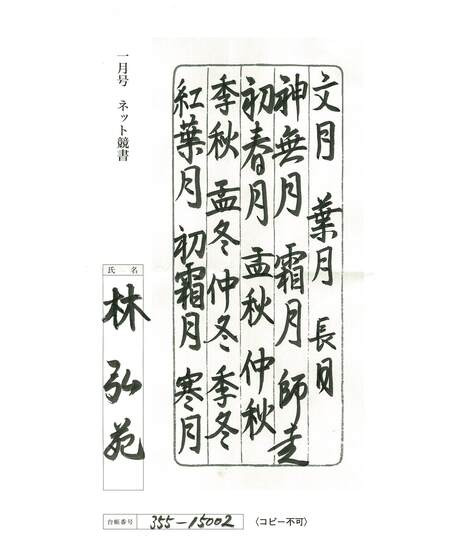 文月 葉月 長月
神無月 霜月 師走
初春月 孟秋 仲秋
季秋 孟冬 仲冬 季冬
紅葉月 初霜月 寒月
一月号 ネット競書
氏名
林弘苑
台帳番号 355-15002 〈コピー不可〉